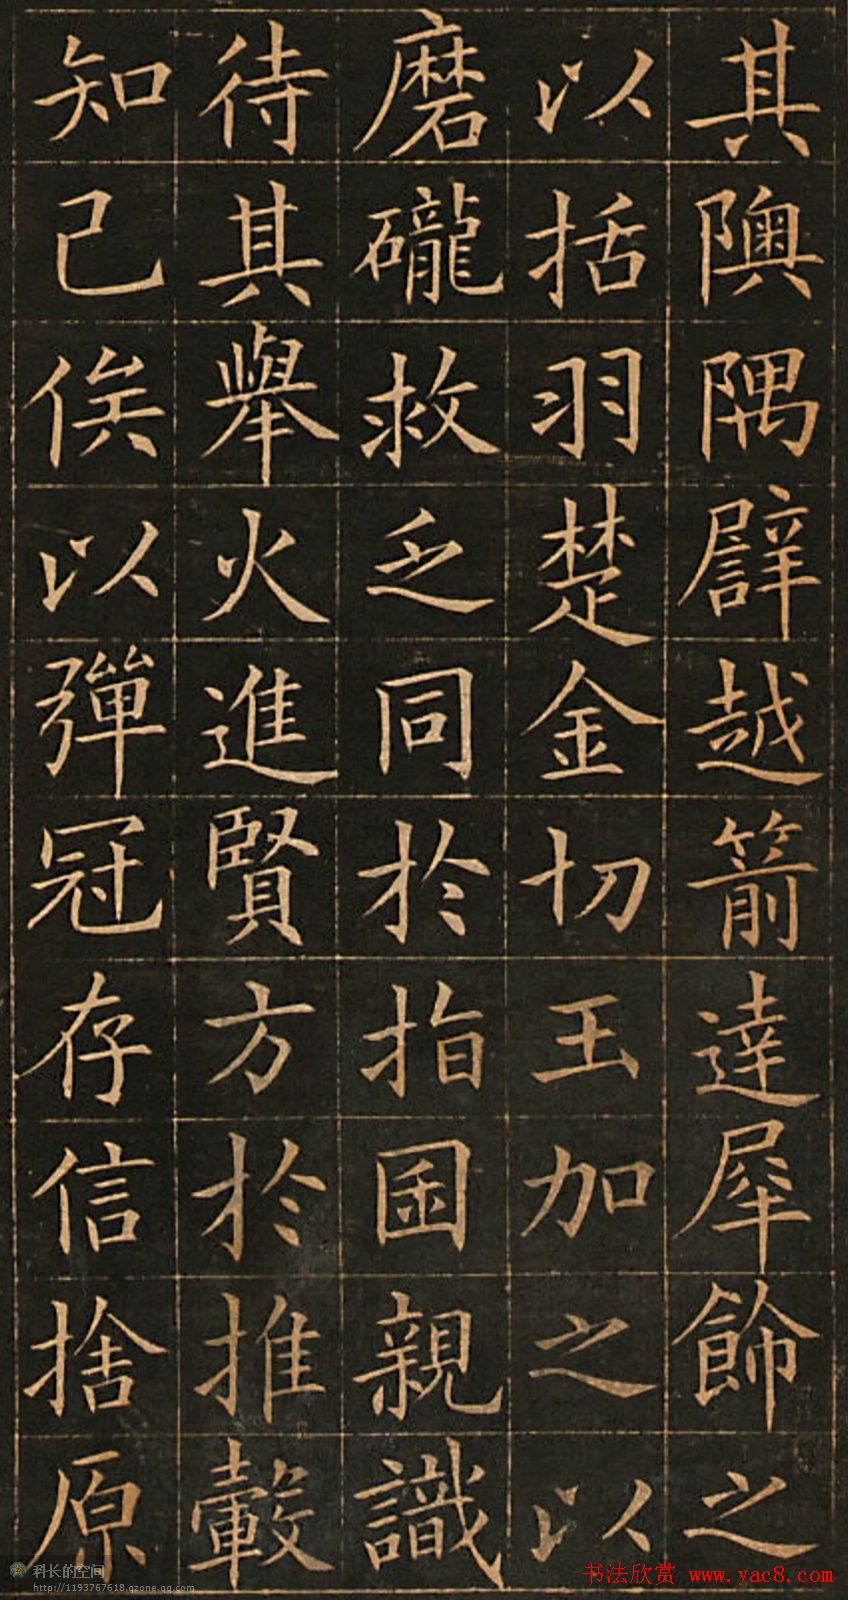 其隩隅譬越箭達犀飾之
以括羽楚金切王加之以
磨礲救乏同於指囷親識
待其舉火進賢方於推轂
知己俟以彈冠存信捨原
科长的空间
http://1193767618.qzone.qq.com
书法欣赏 www.yac8.com